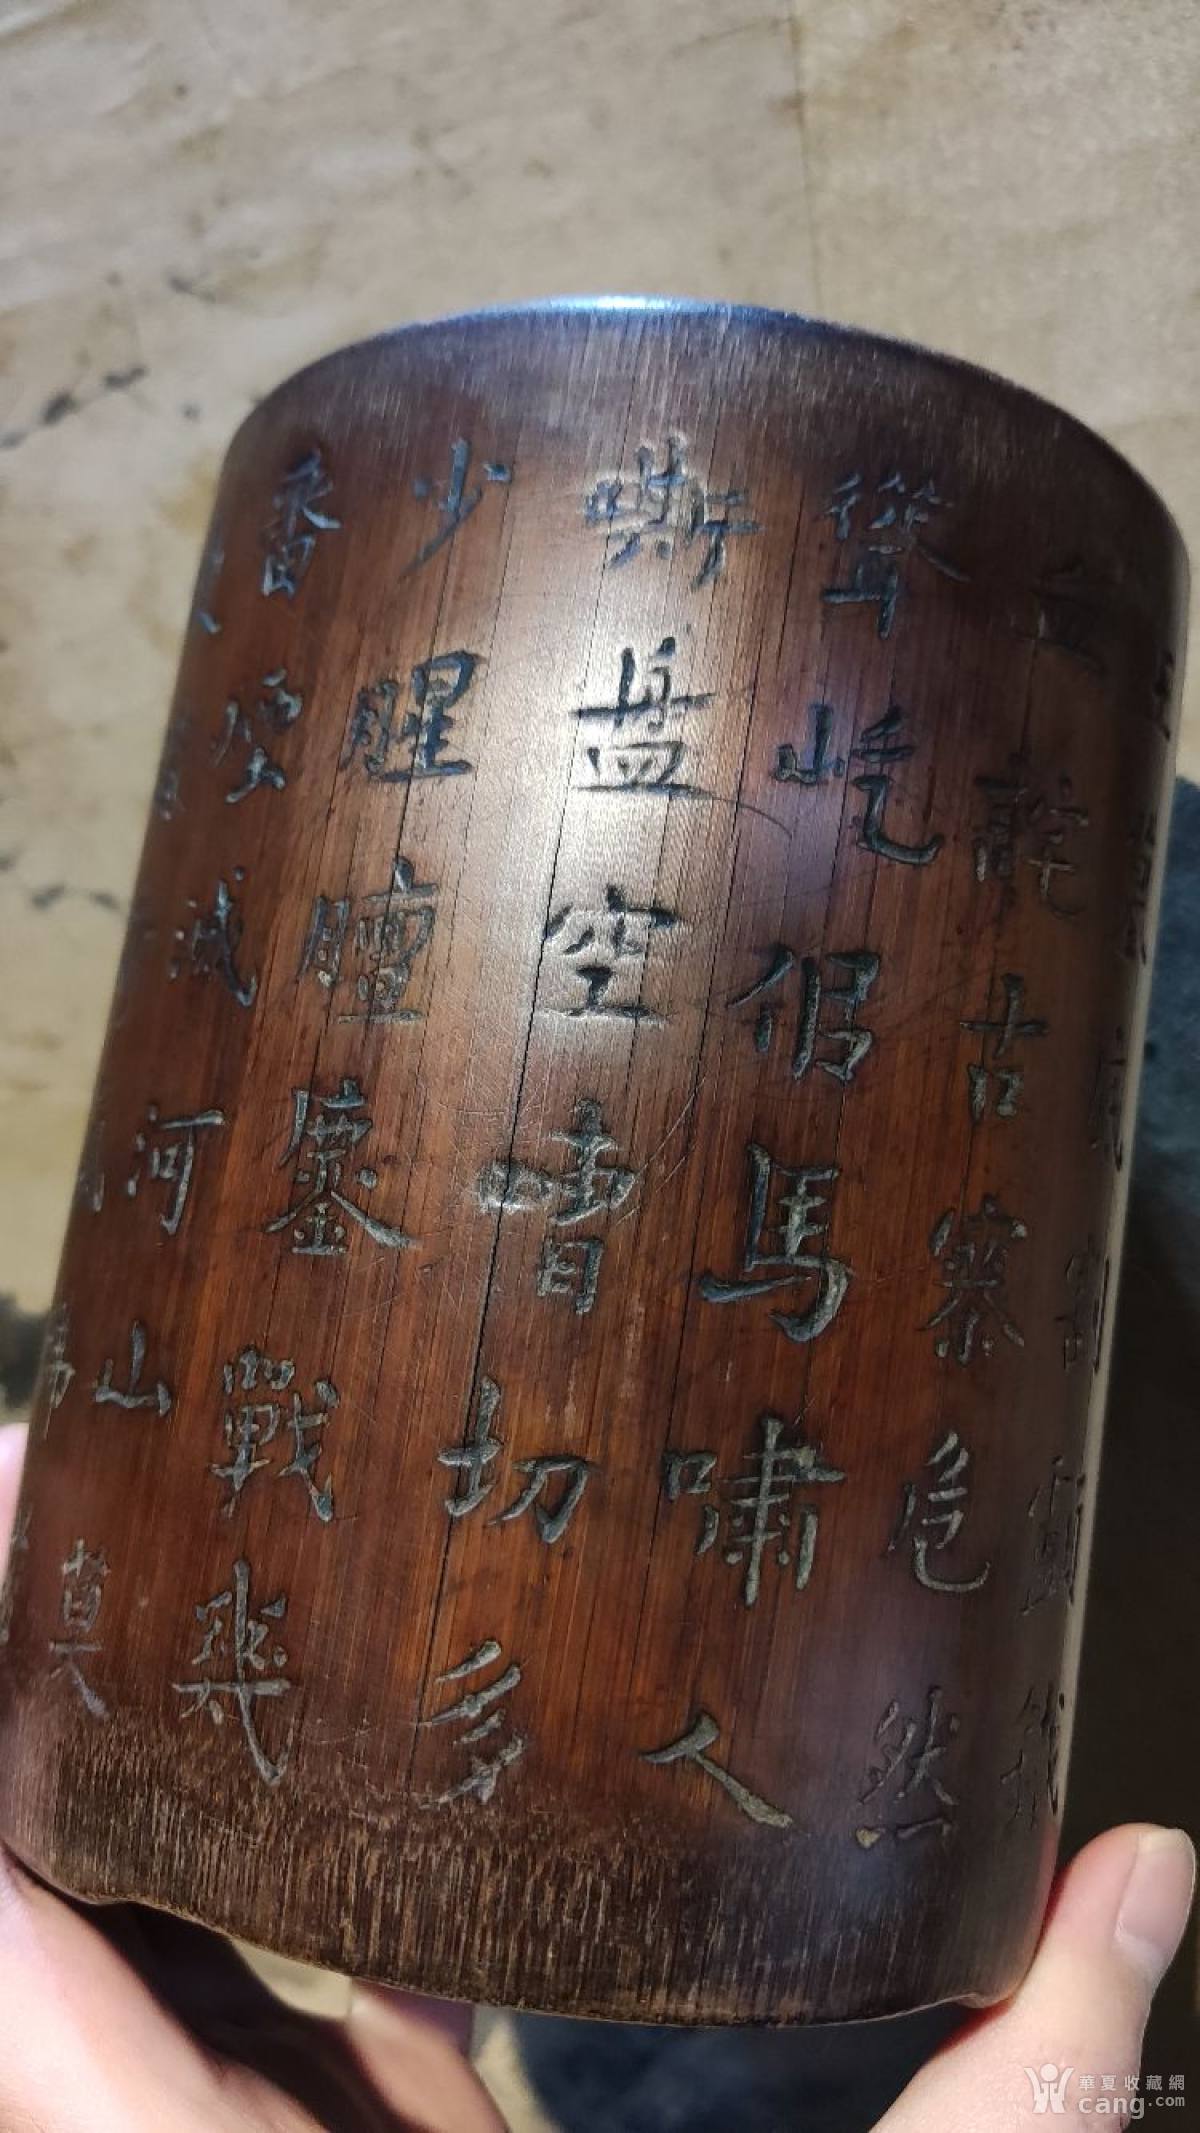 立詫古寨危然
聳屹但馬嘯人
嘶盡空嘈切多
少腥膻鏖戰幾
番煙滅河山莫
華夏收藏網
cang.com